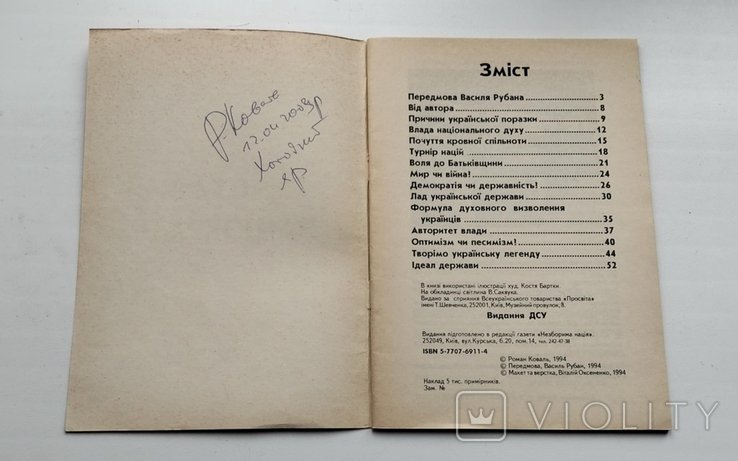 РКоваль
12.04.2009р
Холодний
яр.
Зміст
Передмова Василя Рубана 3
Від автора 8
Причини української поразки 9
Влада національного духу 12
Почуття кровної спільноти 15
Турнір націй 18
Воля до Батьківщини 21
Мир чи війна! 24
Демократія чи державність! 26
Лад української держави 30
Формула духовного визволення
українців 35
Авторитет влади 37
Оптимізм чи песимізм! 40
Творімо українську легенду 44
Ідеал держави 52
В книзі використані ілюстрації худ. Костя Бартки.
На обкладинці світлина В.Саквука.
Видано за сприяння Всеукраїнського товариства «Просвіта»
імені Т.Шевченка, 252001, Київ, Музейний провулок, 8.
Видання ДСУ
Видання підготовлено в редакції газети «Незборима нація».
252049, Київ, вул.Курська, б.20, пом.14, тел. 242-47-38
ISBN 5-7707-6911-4
© Роман Коваль, 1994
© Передмова, Василь Рубан, 1994
© Макет та верстка, Віталій Оксененко, 1994
Наклад 5 тис. примірників.
Зам. №
VIOLITY